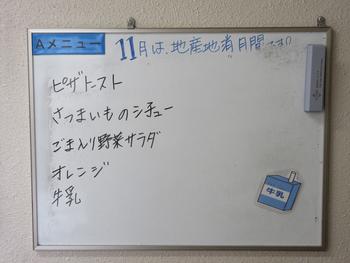 Aメニュー
11月は、地産地消月間です!!
ピザトースト
さつまいものシチュー
ごま入り野菜サラダ
オレンジ
牛乳
牛乳